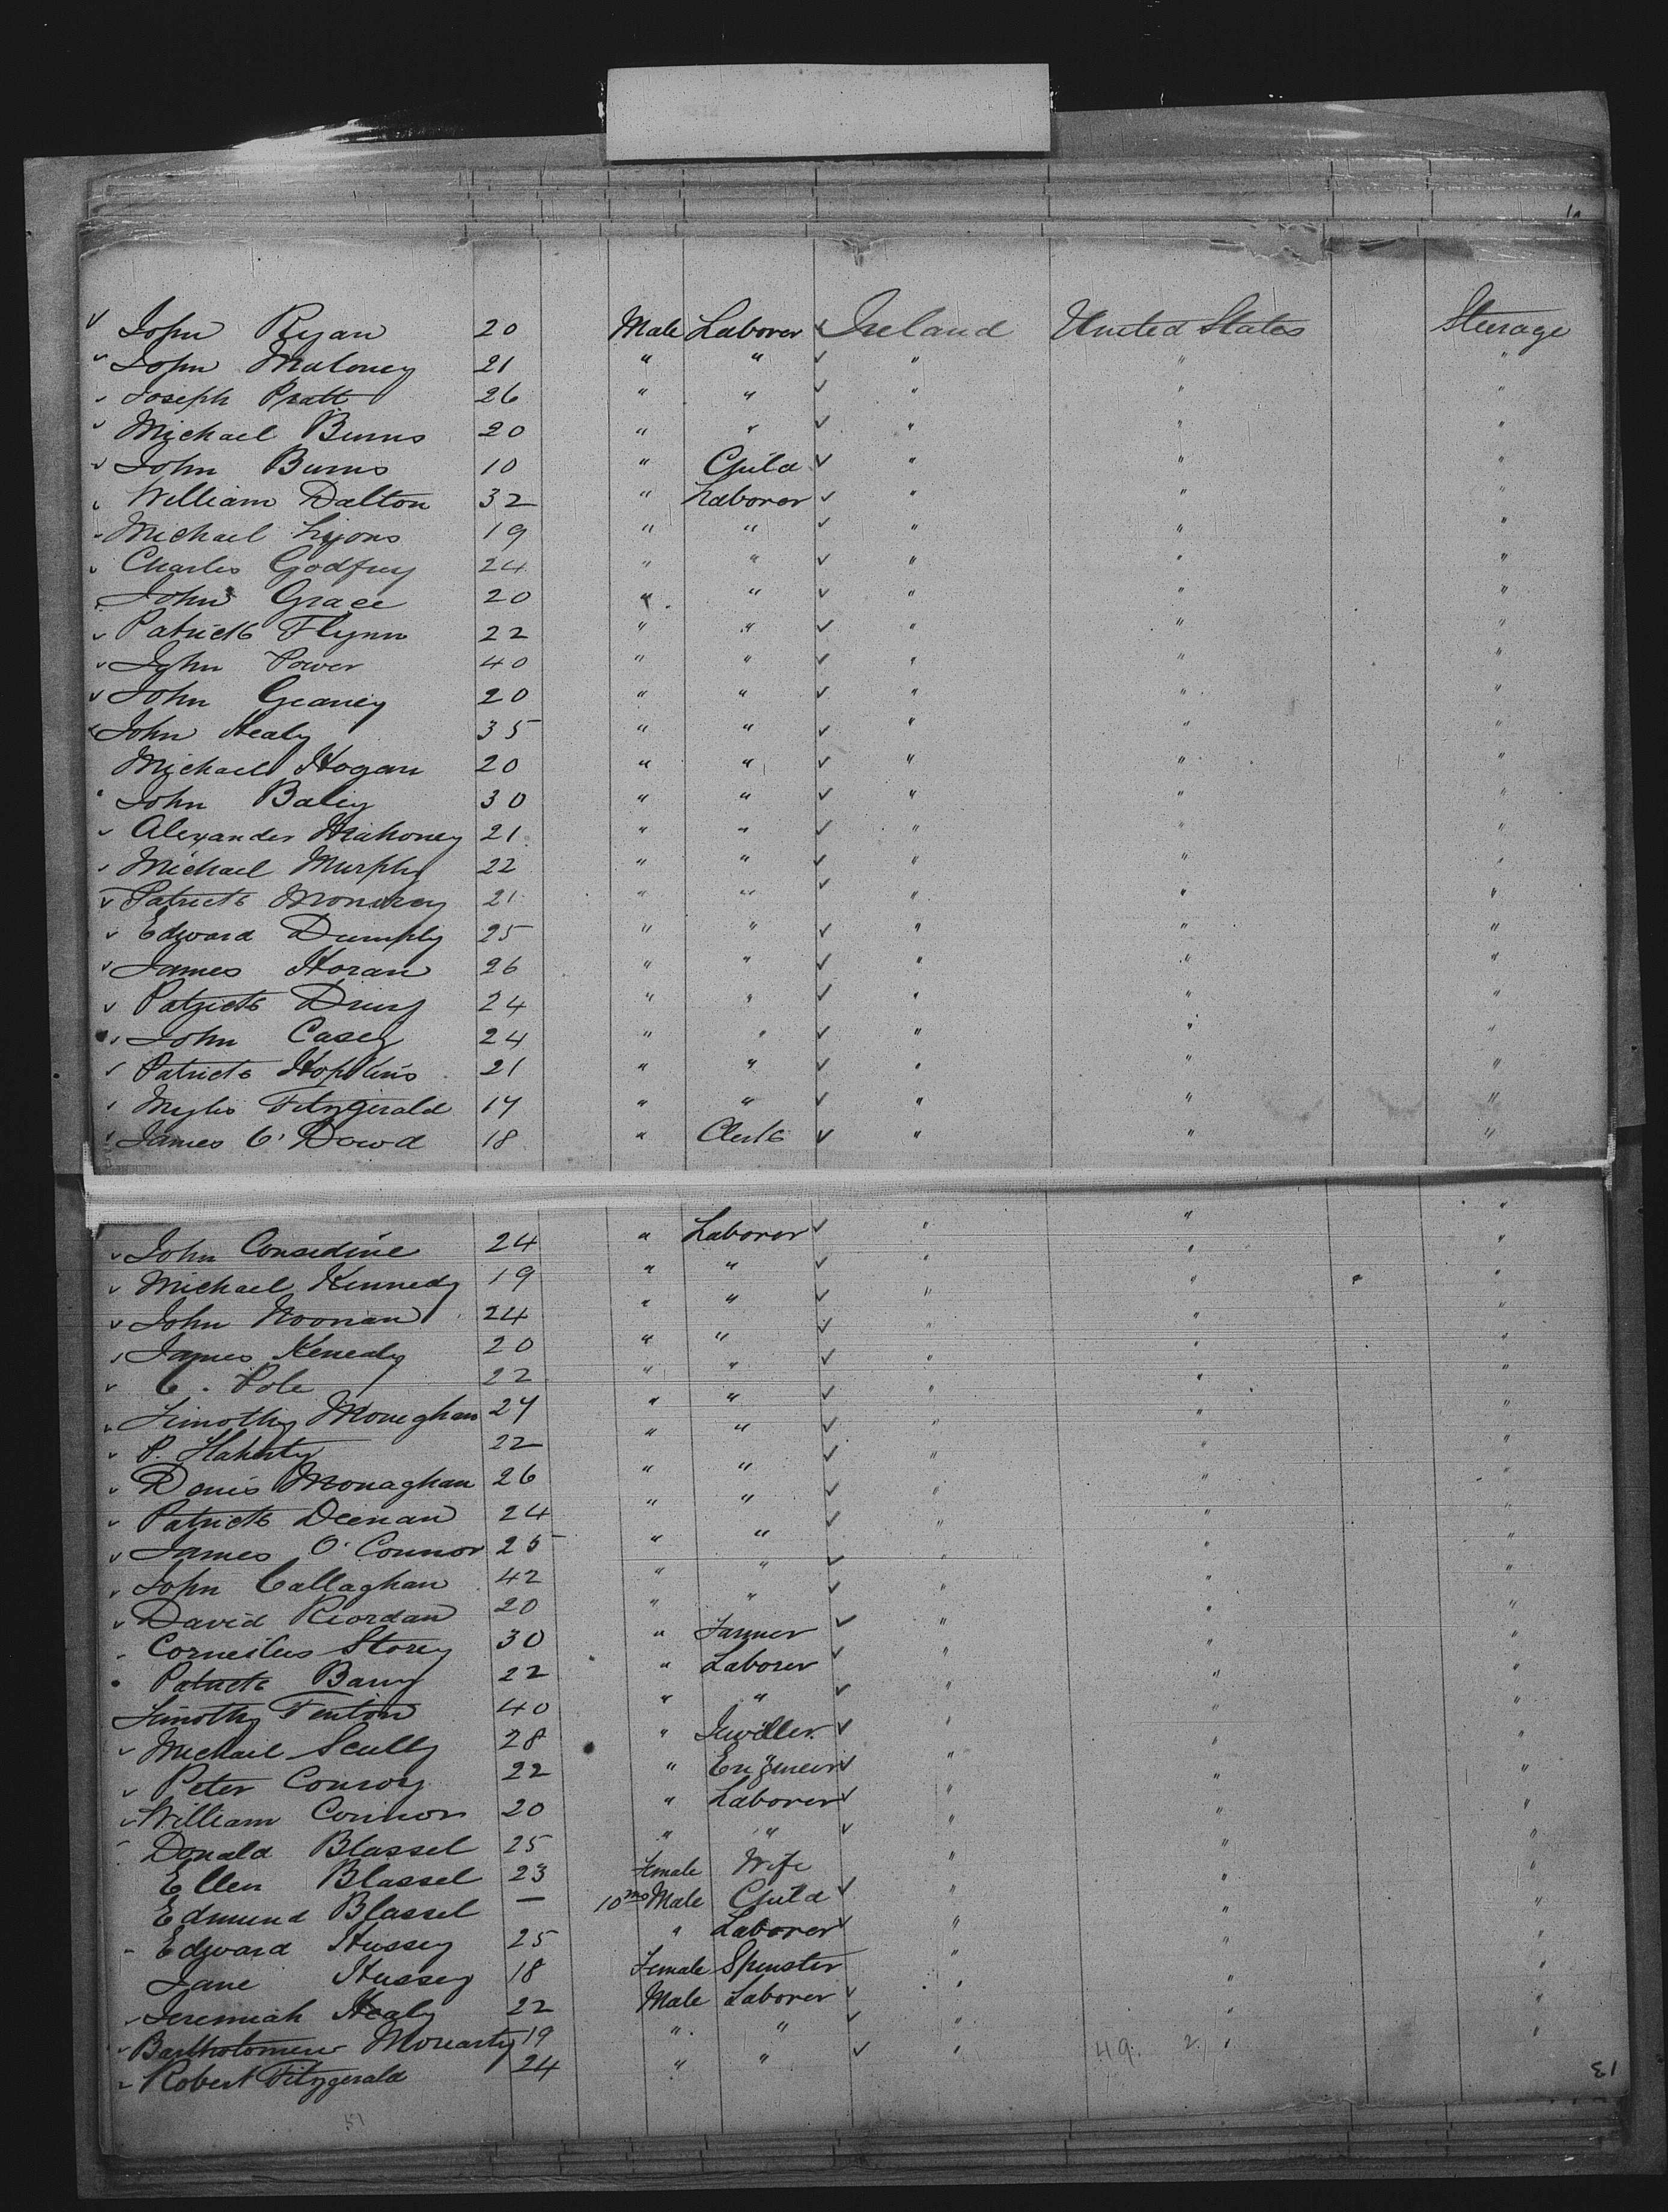 John Ryan 20 Male Laborer Ireland United States Steerage
John Maloney 21 " " " " "
Joseph Pratt 26 " " " " "
Michael Burns 20 " " " " "
John Burns 10 " Child " " "
William Dalton 32 " Laborer " " "
Michael Lyons 19 " " " " "
Charles Godfrey 24 " " " " "
John Grace 20 " " " " "
Patrick Flynn 22 " " " " "
John Power 40 " " " " "
John Geaney 20 " " " " "
John Healy 35 " " " " "
Michael Hogan 20 " " " " "
John Baley 30 " " " " "
Alexander Mahoney 21 " " " " "
Michael Murphy 22 " " " " "
Patrick 21 " " " " "
Edward Dumphy 25 " " " " "
James Horan 26 " " " " "
Patrick 24 " " " " "
John Casey 24 " " " " "
Patrick Hopkins 21 " " " " "
Myles Fitzgerald 17 " " " " "
James O'Dowd 18 " Clerk " " "
John Considine 24 " Laborer " " "
Michael Kennedy 19 " " " " "
John Noonan 24 " " " " "
James Kenedy 20 " " " " "
C. Pole 22 " " " " "
Timothy Moneghan 27 " " " " "
P. Flaherty 22 " " " " "
Denis Monaghan 26 " " " " "
Patrick Deenan 24 " " " " "
James O'Connor 25 " " " " "
John Callaghan 42 " " " " "
David Riordan 20 " " " " "
Cornelius Storey 30 " Farmer " " "
Patrick Barry 22 " Laborer " " "
Timothy Fenton 40 " " " " "
Michael Scully 28 " Jewiller " " "
Peter Conroy 22 " Engineer " " "
William Connor 20 " Laborer " " "
Donald Blassel 25 " " " " "
Ellen Blassel 23 Female Wife " " "
Edmund Blassel — 10 mo Male Child " " "
Edward Hussey 25 " Laborer " " "
Jane Hussey 18 Female Spinster " " "
Jeremiah Healy 22 Male Laborer " " "
Bartholomew Moriarty 19 " " " " "
Robert Fitzgerald 24 " " " " "
49. 2
51
13